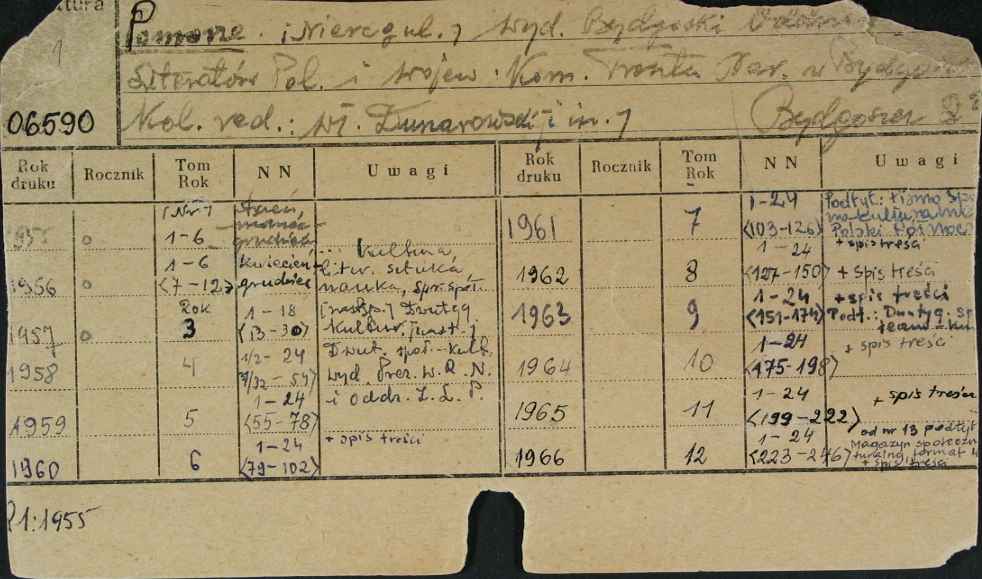 1
06590
Pomorze. [Nieregul.] Wyd. Bydgoski Oddział
Literatów Pol. i Wojew. Kom. Frontu Nar. w Bydgoszczy
Kol. red.: Wł. Dunarowski [i in.] Bydgoszcz
Rok druku Rocznik Tom Rok NN Uwagi Rok druku Rocznik Tom Rok NN Uwagi
1955 0 [Nr] 1-6 grudzień
1956 0 1-6 <7-12> kwiecień-grudzień
Kultura,
liter. sztuka,
nauka, spr. społ.
1957 0 Rok 3 1-18 <13-30> [następ.] Dwutyg.
1958 4 1/2-24 Dwut. społ.-kult.
wyd. Prez. W.R.N.
i Oddz. Z.L.P.
1959 5 1-24 <55-78>
1960 6 1-24 <79-102> + spis treści
1961 7 1-24 <103-126> Podtyt.: Pismo
+ spis treści
1962 8 1-24 <127-150> + spis treści
1963 9 1-24 <151-174> + spis treści
Podt.: Dwutyg.
1964 10 1-24 <175-198> + spis treści
1965 11 1-24 <199-222> + spis treści
1966 12 1-24 <223-246> od nr 13 podtyt.
Magazyn społeczn
format
+ spis treści
P1:1955